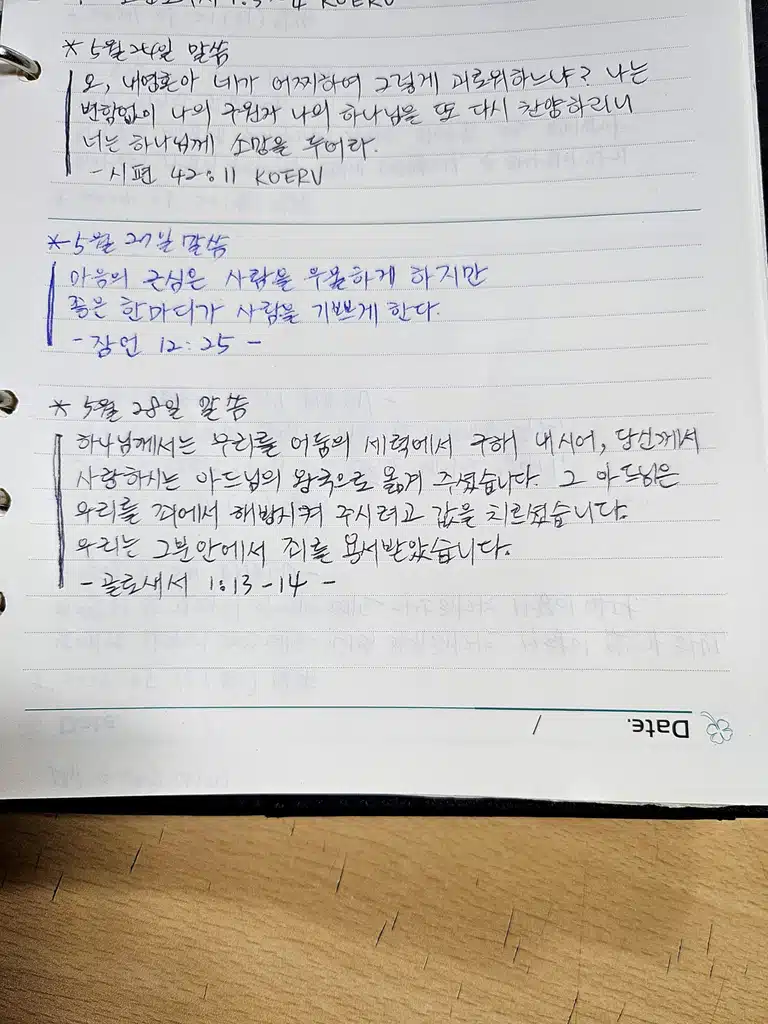 1:3-4 KOERV
* 5월 24일 말씀
오, 내영혼아 네가 어찌하여 그렇게 괴로워하느냐? 나는
변함없이 나의 구원자 나의 하나님을 또 다시 찬양하리니
너는 하나님께 소망을 두어라.
- 시편 42:11 KOERV
* 5월 27일 말씀
마음의 근심은 사람을 우울하게 하지만
좋은 한마디가 사람을 기쁘게 한다.
- 잠언 12:25 -
* 5월 28일 말씀
하나님께서는 우리를 어둠의 세력에서 구해 내시어, 당신께서
사랑하시는 아드님의 왕국으로 옮겨 주셨습니다. 그 아드님은
우리를 죄에서 해방시켜 주시려고 값을 치르셨습니다.
우리는 그분안에서 죄를 용서받았습니다.
- 골로새서 1:13-14 -
Date. /